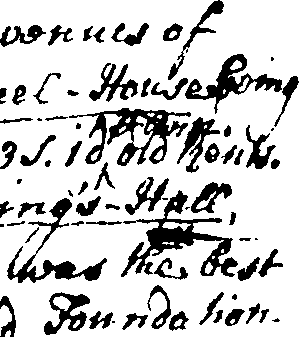 venues of
el-House being
3s. 1d. old Rents.
ing's-Hall,
was the best
d Foundation.